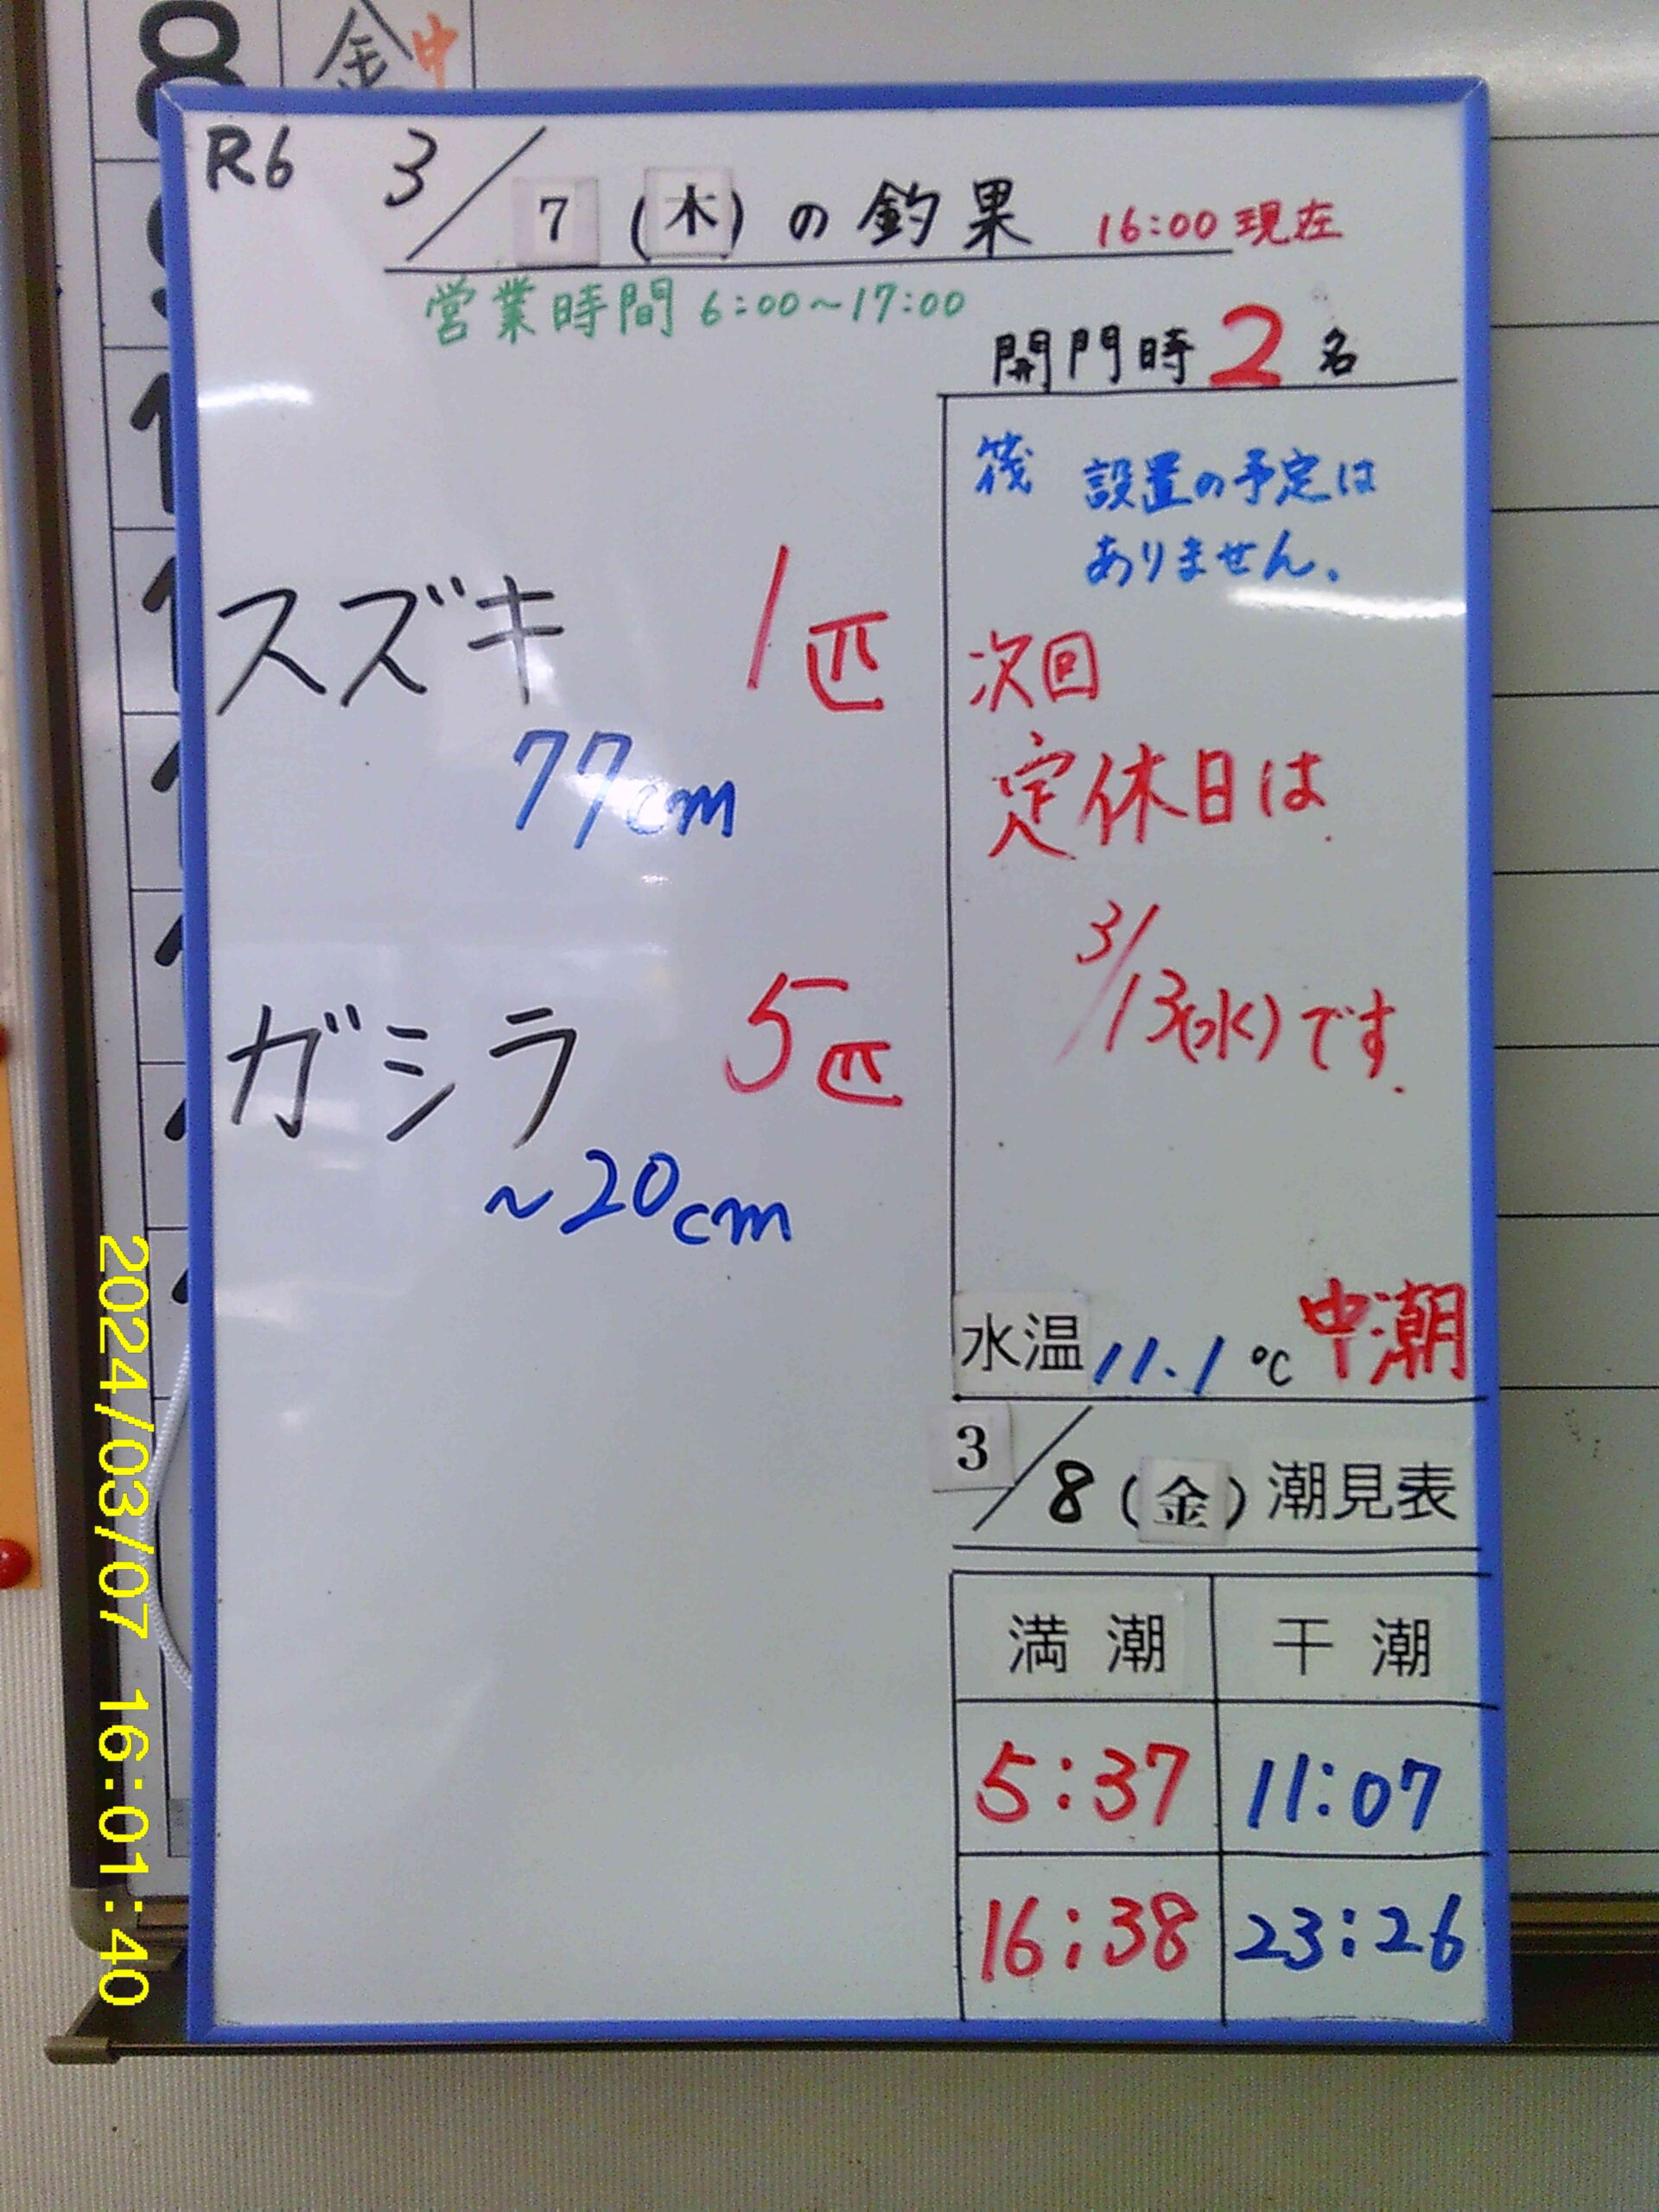 金 中
R6 3/7(木)の釣果 16:00現在
営業時間 6:00~17:00
開門時 2 名
筏 設置の予定は
ありません。
スズキ 1匹
77cm
次回
定休日は
3/13(水)です.
ガシラ 5匹
~20cm
水温 11.1℃ 中潮
3/8(金)潮見表
満潮 干潮
5:37 11:07
16:38 23:26
2024/03/07 16:01:40